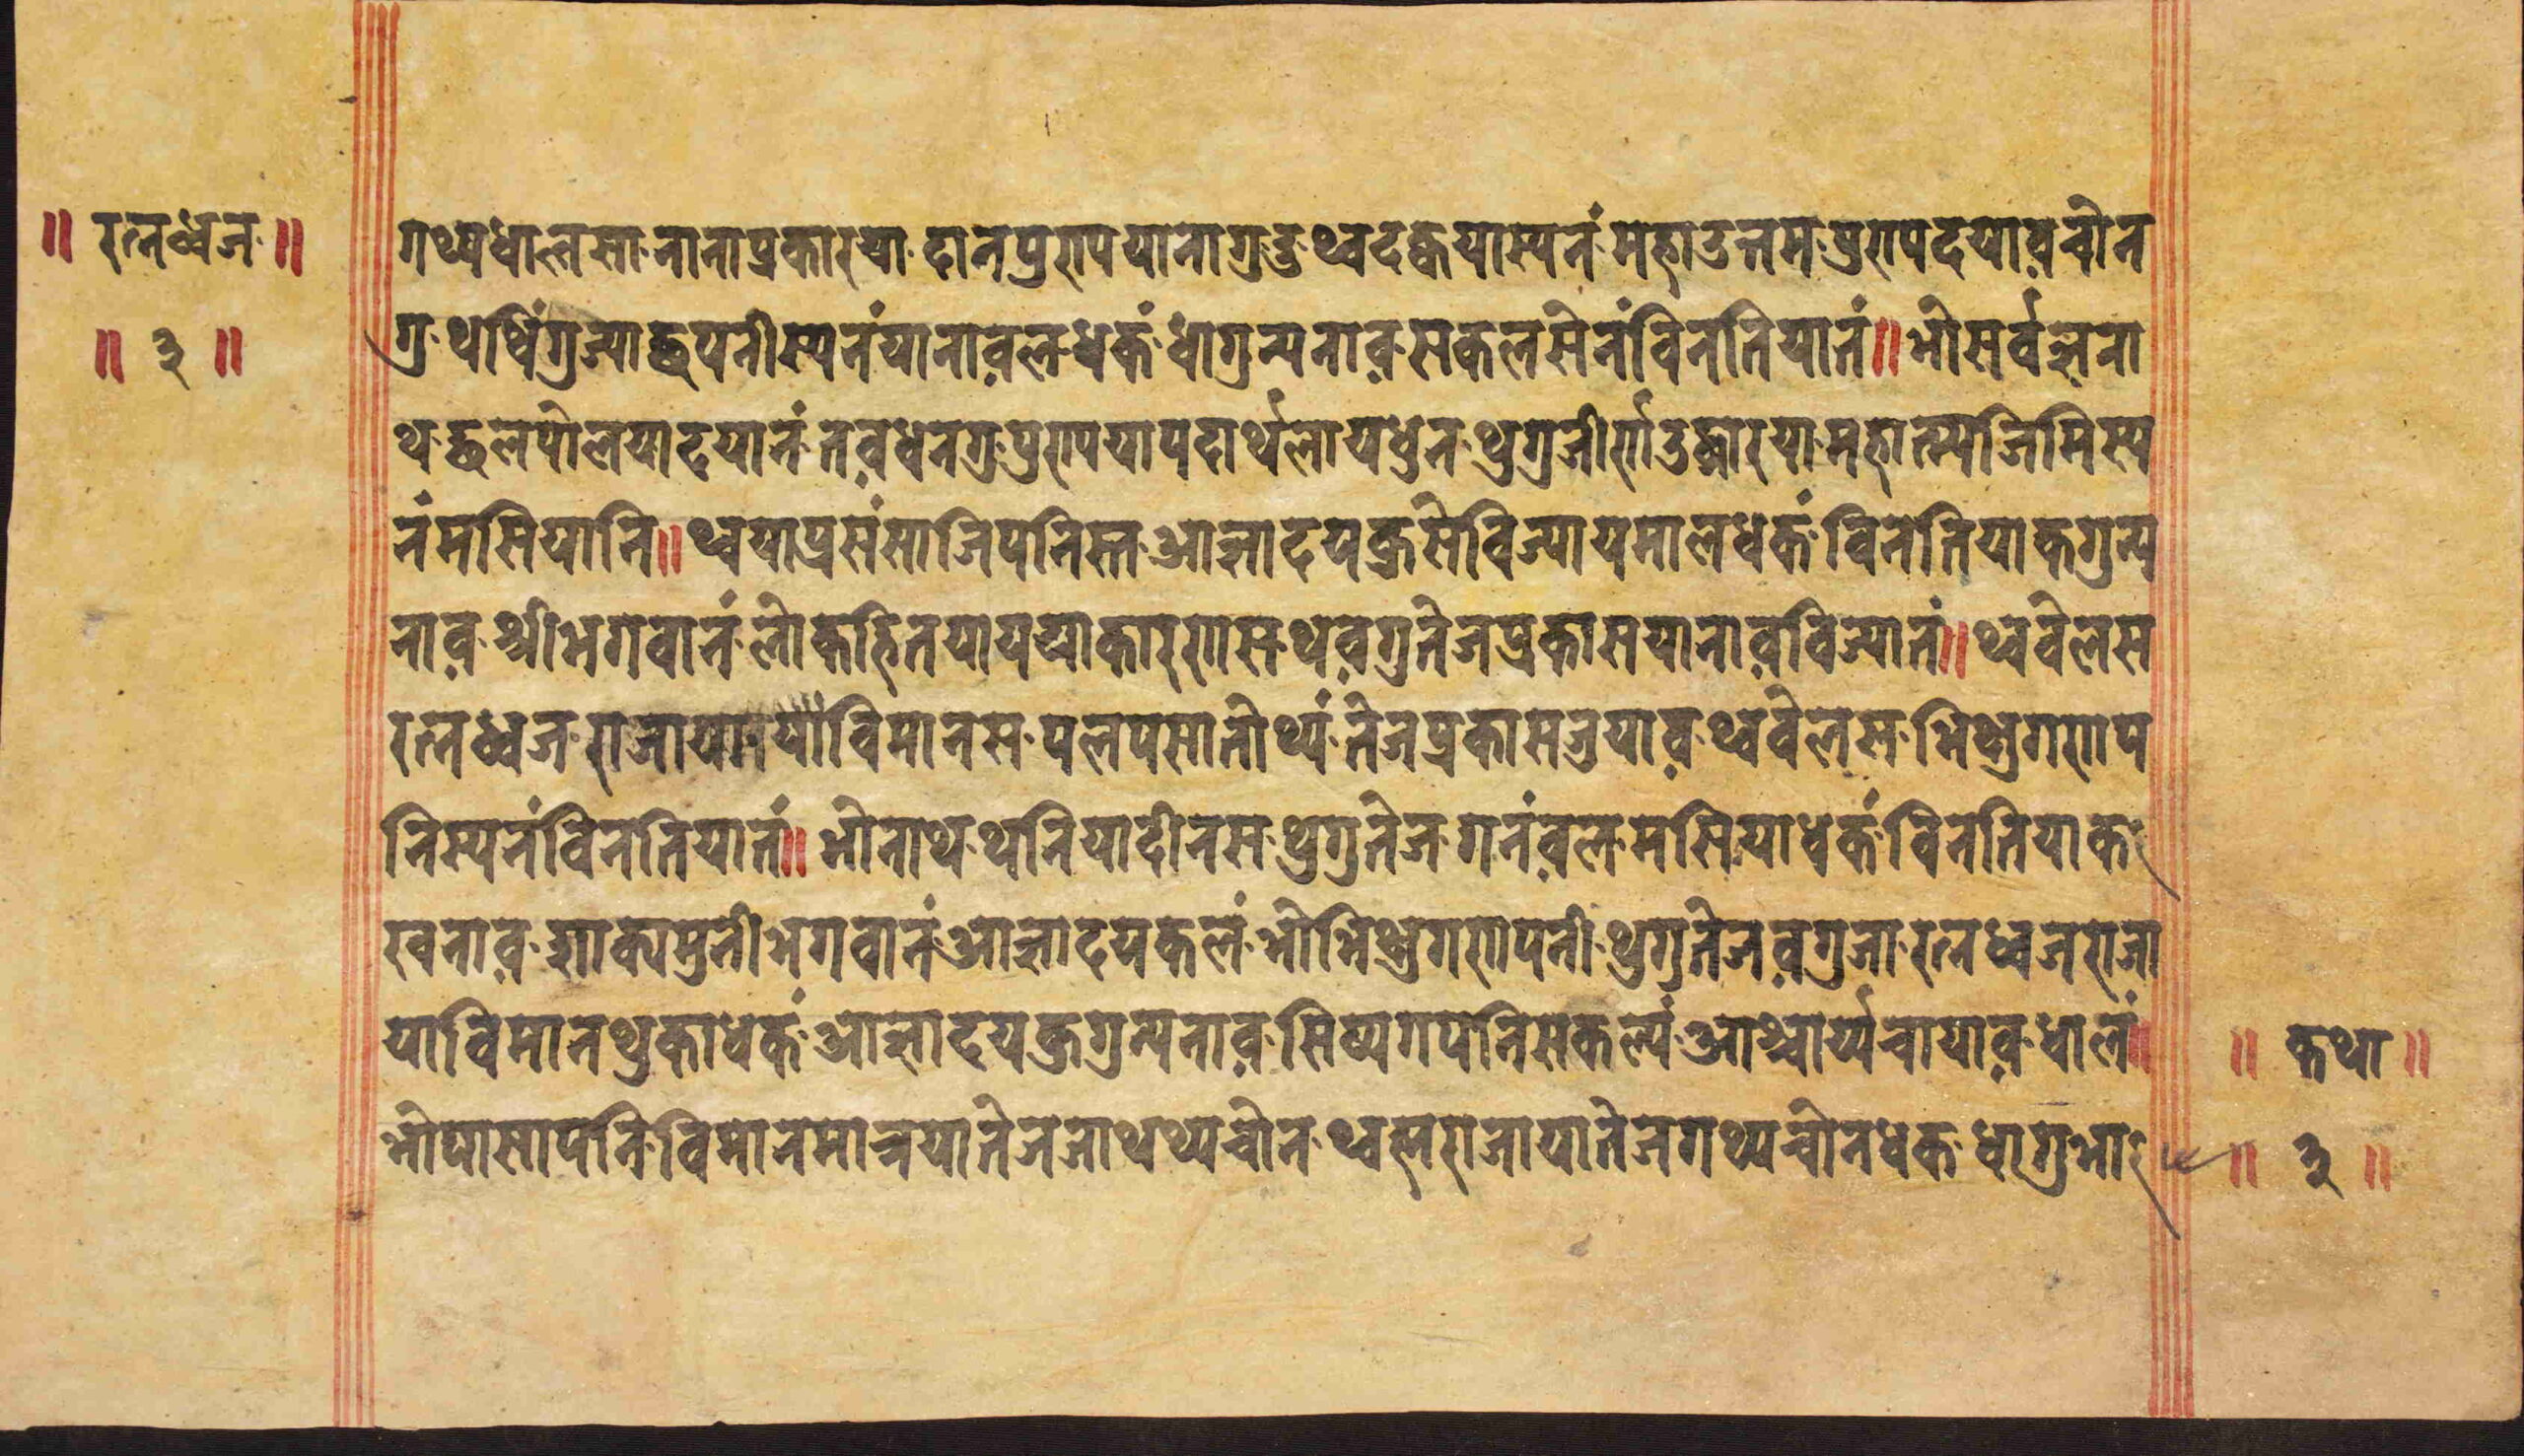 ॥ रत्नध्वज ॥
॥ ३ ॥
गथ्यधालसा नानाप्रकारया दानपुण्य यानागु दु थ्व दक्वयास्यनं महाउत्तम पुण्य दयाव़ चोन
गु थथिंगु ज्या छपनीस्यनं याना व़ल धकं धागु न्यनाव़ सकलसेनं विनति यानं॥ भो सर्वज्ञ ना
थ छलपोलया दयानं नव़ धनगु पुण्यया पदार्थ लाय धुन थुगु जीर्णोउद्धारया महात्म्य जिमिस्य
नं मसियानि॥ थ्वया प्रसंसा जिपनिस्त आज्ञा दयकुसे विज्यायमाल धकं विनति याकगु न्य
नाव़ श्रीभगवानं लोकहित यायया कारणस थव़गु तेज प्रकास यानाव़ विज्यानं॥ थ्ववेलस
रत्नध्वज राजाया विमानस पलपसा तोथ्यं तेज प्रकास जुयाव़ थ्ववेलस भिक्षुगणप
निस्यनं विनति यातं॥ भो नाथ थनियादीनस थुगु तेज गनं व़ल मसिया धकं विनति याक
खनाव़ शाक्यमुनी भगवानं आज्ञा दयकलं भो भिक्षुगणपनी थुगु तेज व़गु जा रत्नध्वज राजा
या विमान थुका धकं आज्ञा दयकुगु न्यनाव़ सिष्यगपनि सकल्यं आश्चार्य्य चायाव़ धालं॥
भो पासापनि विमान मात्रया तेज जा थथ्य चोन थ्वह्म राजाया तेज गथ्य चोन धक धागु भा
॥ कथा ॥
॥ ३ ॥